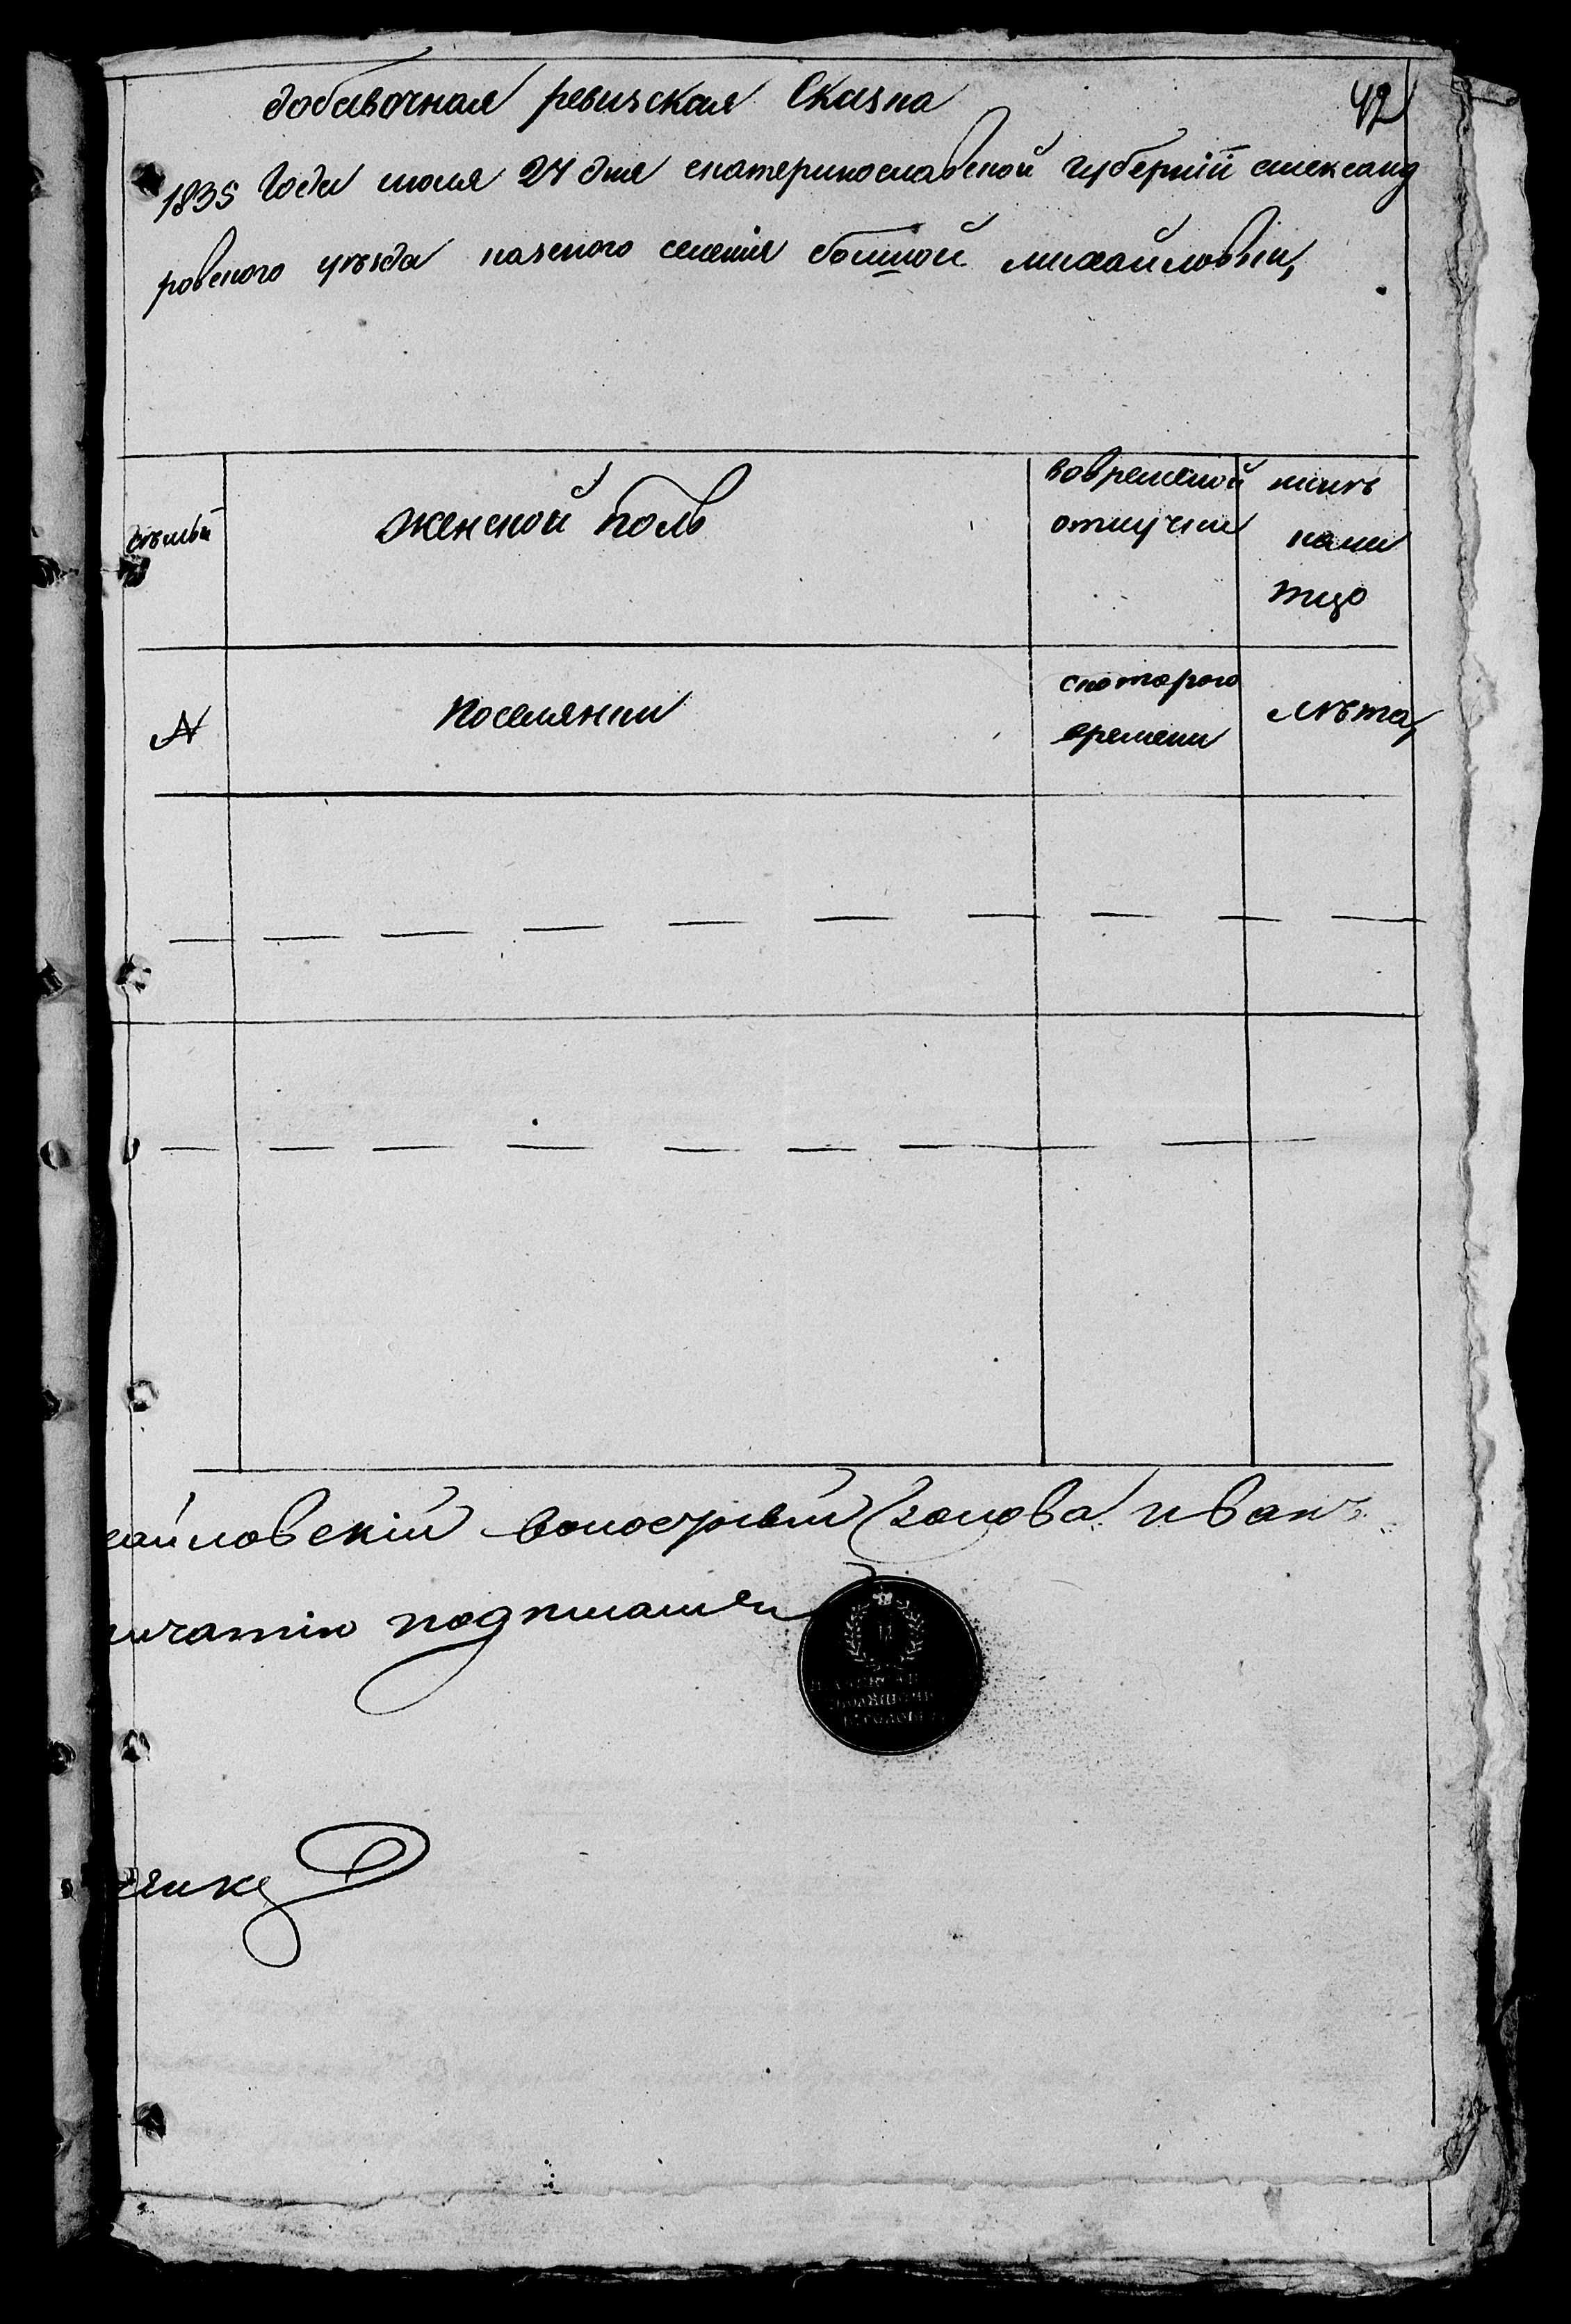 добавочная ревизская Сказка
42
1835 Года июля 24 дня екатеринославской губернiи александ
ровского уѣзда казеного селенiя болшой михайловки,
семьи
женской полъ
вовременой
отлучки
нынѣ
нали
тцо
N
Поселянки
скоторого
времени
лѣта,
хайловскiй волосный голова иванъ
печатiю подписался
енко